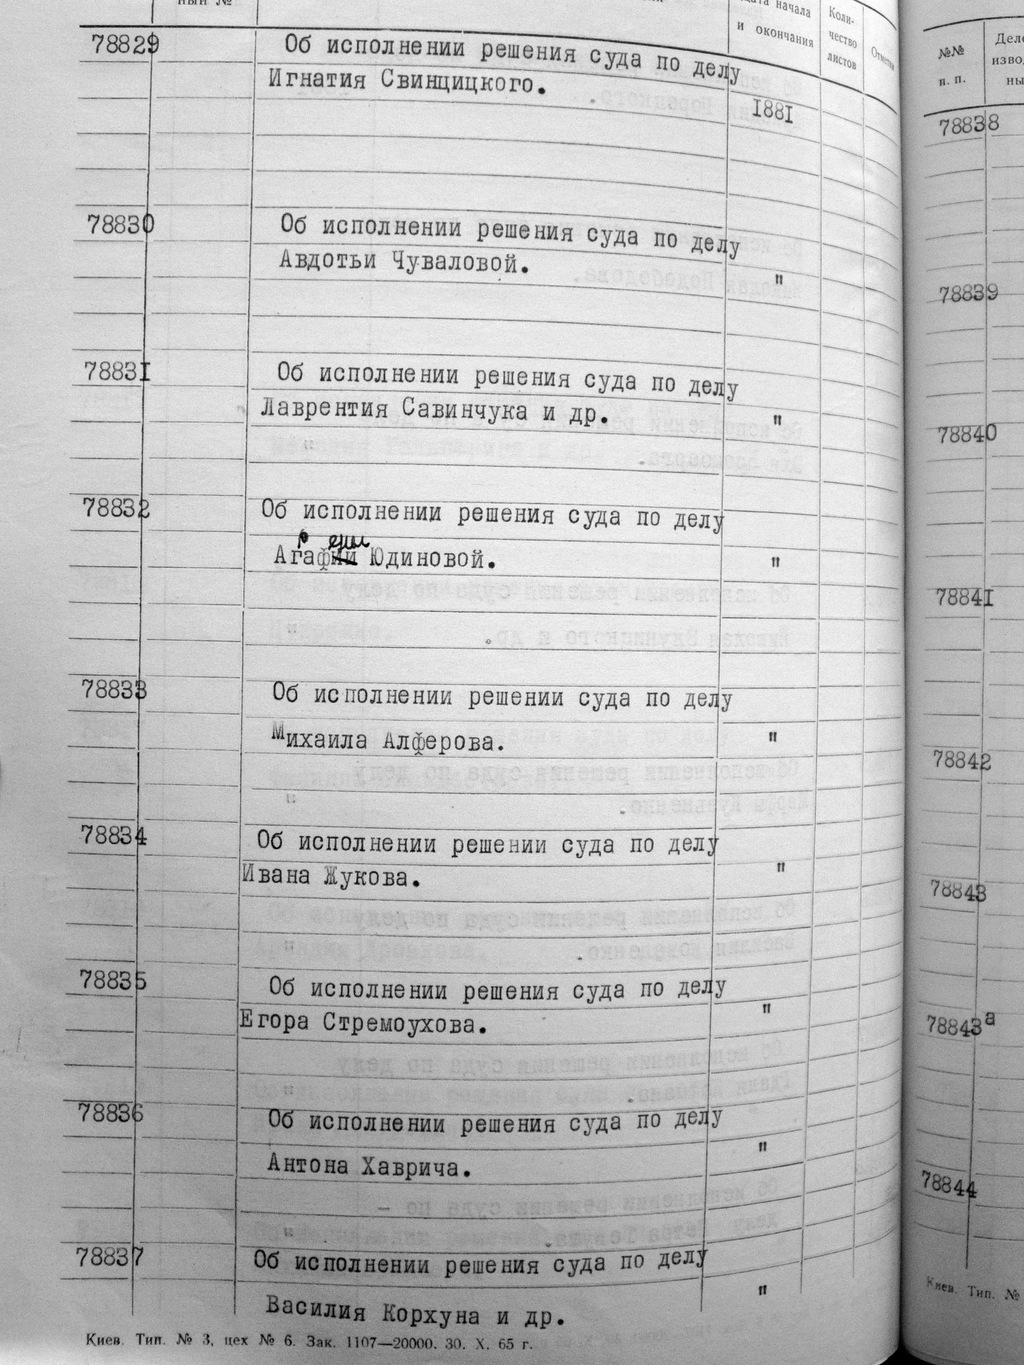 ный №
Дата начала
и окончания
Коли-
чество
листов
Отметки
78829 Об исполнении решения суда по делу
Игнатия Свинцицкого.
1881
78830 Об исполнении решения суда по делу
Авдотьи Чуваловой. "
78831 Об исполнении решения суда по делу
Лаврентия Савинчука и др. "
78832 Об исполнении решения суда по делу
р ени
Агафии Юдиновой. "
78833 Об исполнении решении суда по делу
Михаила Алферова. "
78834 Об исполнении решении суда по делу
Ивана Жукова. "
78835 Об исполнении решения суда по делу
Егора Стремоухова. "
78836 Об исполнении решения суда по делу
Антона Хаврича. "
78837 Об исполнении решения суда по делу
Василия Корхуна и др. "
Киев. Тип. № 3, цех № 6. Зак. 1107—20000. 30. X. 65 г.
№№
п. п.
78838
78839
78840
78841
78842
78843
78843а
78844
Киев. Тип. №